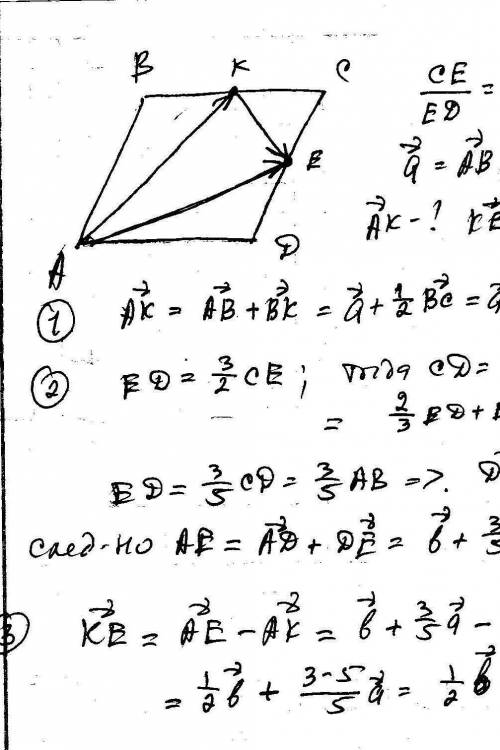 B K C
CE/ED =
E
a⃗ = AB⃗
AK⃗ - ? KE⃗
A D
① AK⃗ = AB⃗ + BK⃗ = a⃗ + 1/2 BC⃗ = a⃗
② ED = 3/2 CE ; тогда CD =
= 2/3 ED + E
ED = 3/5 CD = 3/5 AB => . D
След-но AE = AD⃗ + DE⃗ = b⃗ + 3/5
3 KE⃗ = AE⃗ - AK⃗ = b⃗ + 3/5 a⃗ -
= 1/2 b⃗ + 3-5/5 a⃗ = 1/2 b⃗